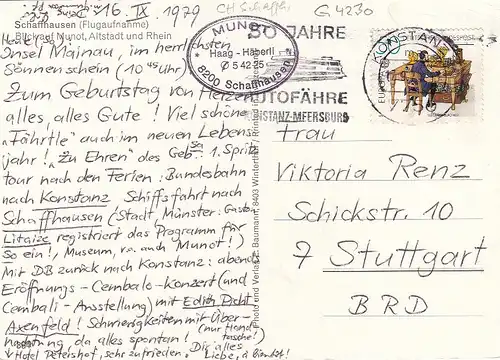 16. IX. 1979
CH Schaffh.
G 4230
Schaffhausen (Flugaufnahme)
Blick auf Munot, Altstadt und Rhein
Insel Mainau, im herrlichsten
Sonnenschein (10 45 Uhr)
Zum Geburtstag von Herzen
alles alles Gute! Viel schöne
"Fährtle" auch im neuen Lebens-
jahr! "Zu Ehren" des Geb. 1. Spritz-
tour nach den Ferien: Bundesbahn
nach Konstanz Schiffsfahrt nach
Schaffhausen (Stadt, Münster: Gaston
Litaize registriert das Programm für
So ein!, Museum, v. a. auch Munot!)
Mit DB zurück nach Konstanz: abends
Eröffnungs-Cembalo-Konzert (und
Cembali-Ausstellung) mit Edith Picht
Axenfeld! Schwierigkeiten mit Über-
nachtung, da alles spontan! (nur Hand-
tasche!)
Hotel Petershof, sehr zufrieden. Dir alles
Liebe,
MUNOT
Haag-Häberli
053 5 42 25
8200 Schaffhausen
50 JAHRE
AUTOFÄHRE
KONSTANZ-MEERSBURG
KONSTANZ
Photo und Verlag Z. Baumann, 8403 Winterthur
Frau
Viktoria Renz
Schickstr. 10
7 Stuttgart
BRD